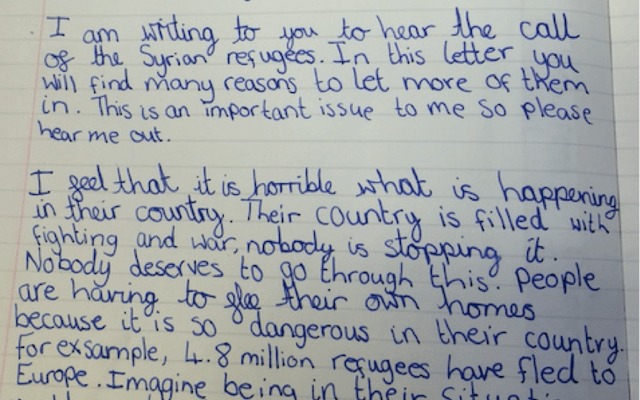 I am writing to you to hear the call
of the Syrian refugees. In this letter you
will find many reasons to let more of them
in. This is an important issue to me so please
hear me out.
I feel that it is horrible what is happening
in their country. Their country is filled with
fighting and war, nobody is stopping it.
Nobody deserves to go through this. People
are having to flee their own homes
because it is so dangerous in their country.
for exsample, 4.8 million refugees have fled to
Europe. Imagine being in their situati